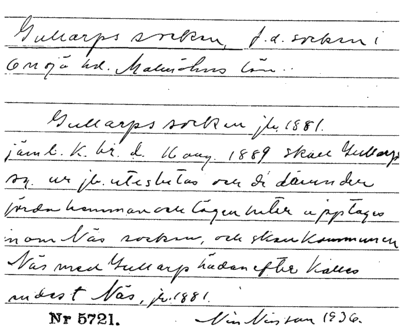 Gullarps socken, f.d. socken i
Onsjö hd. Malmöhus län.
Gullarps socken jb. 1881.
jäml. K. br. d. 16 aug. 1889 skall Gullarps
sn. ur jb. uteslutas och di därunder
jorda komman och lägenheter upptagas
inom Näs socken, och skall kommunen
Näs med Gullarp hädanefter kallas
endast Näs, jb. 1881.
Nr 5721. Nils Nilsson 1936.